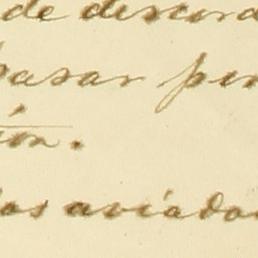 de discord
pasar por
ión.
las aviado